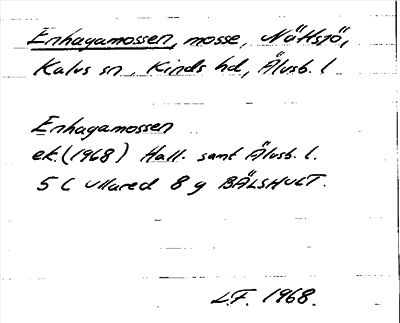 Enhagamossen, mosse, Nättsjö,
Kalvs sn, Kinds hd, Älvsb. l
Enhagamossen
ek. (1968) Hall. samt Älvsb. l.
5 C Ullared 8 g BÄLSHULT.
L.F. 1968.